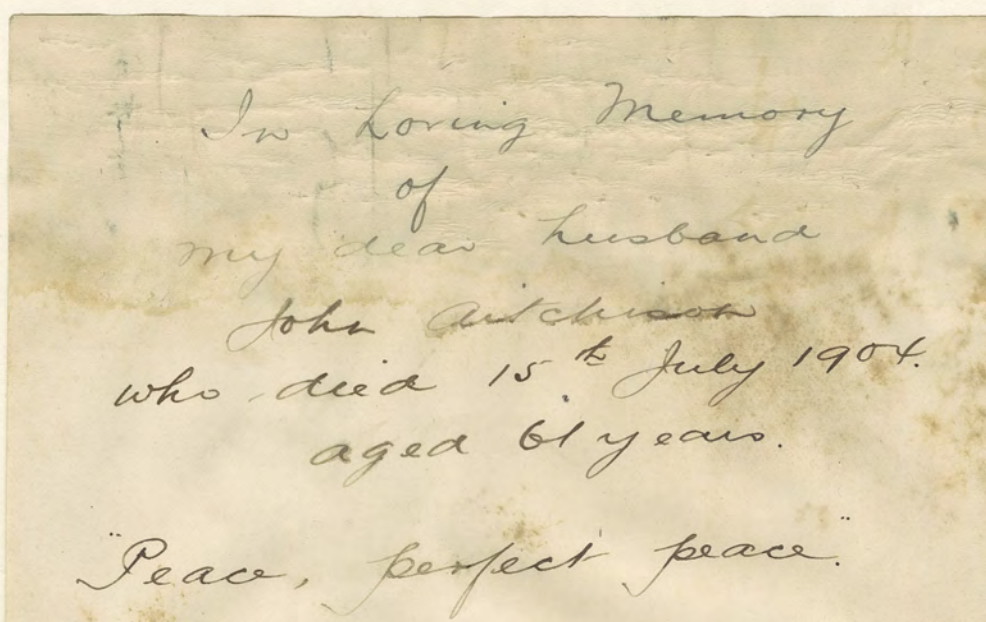 In Loving Memory
of
my dear husband
John Aitchison
who died 15th July 1904.
aged 61 years.
"Peace, perfect peace".